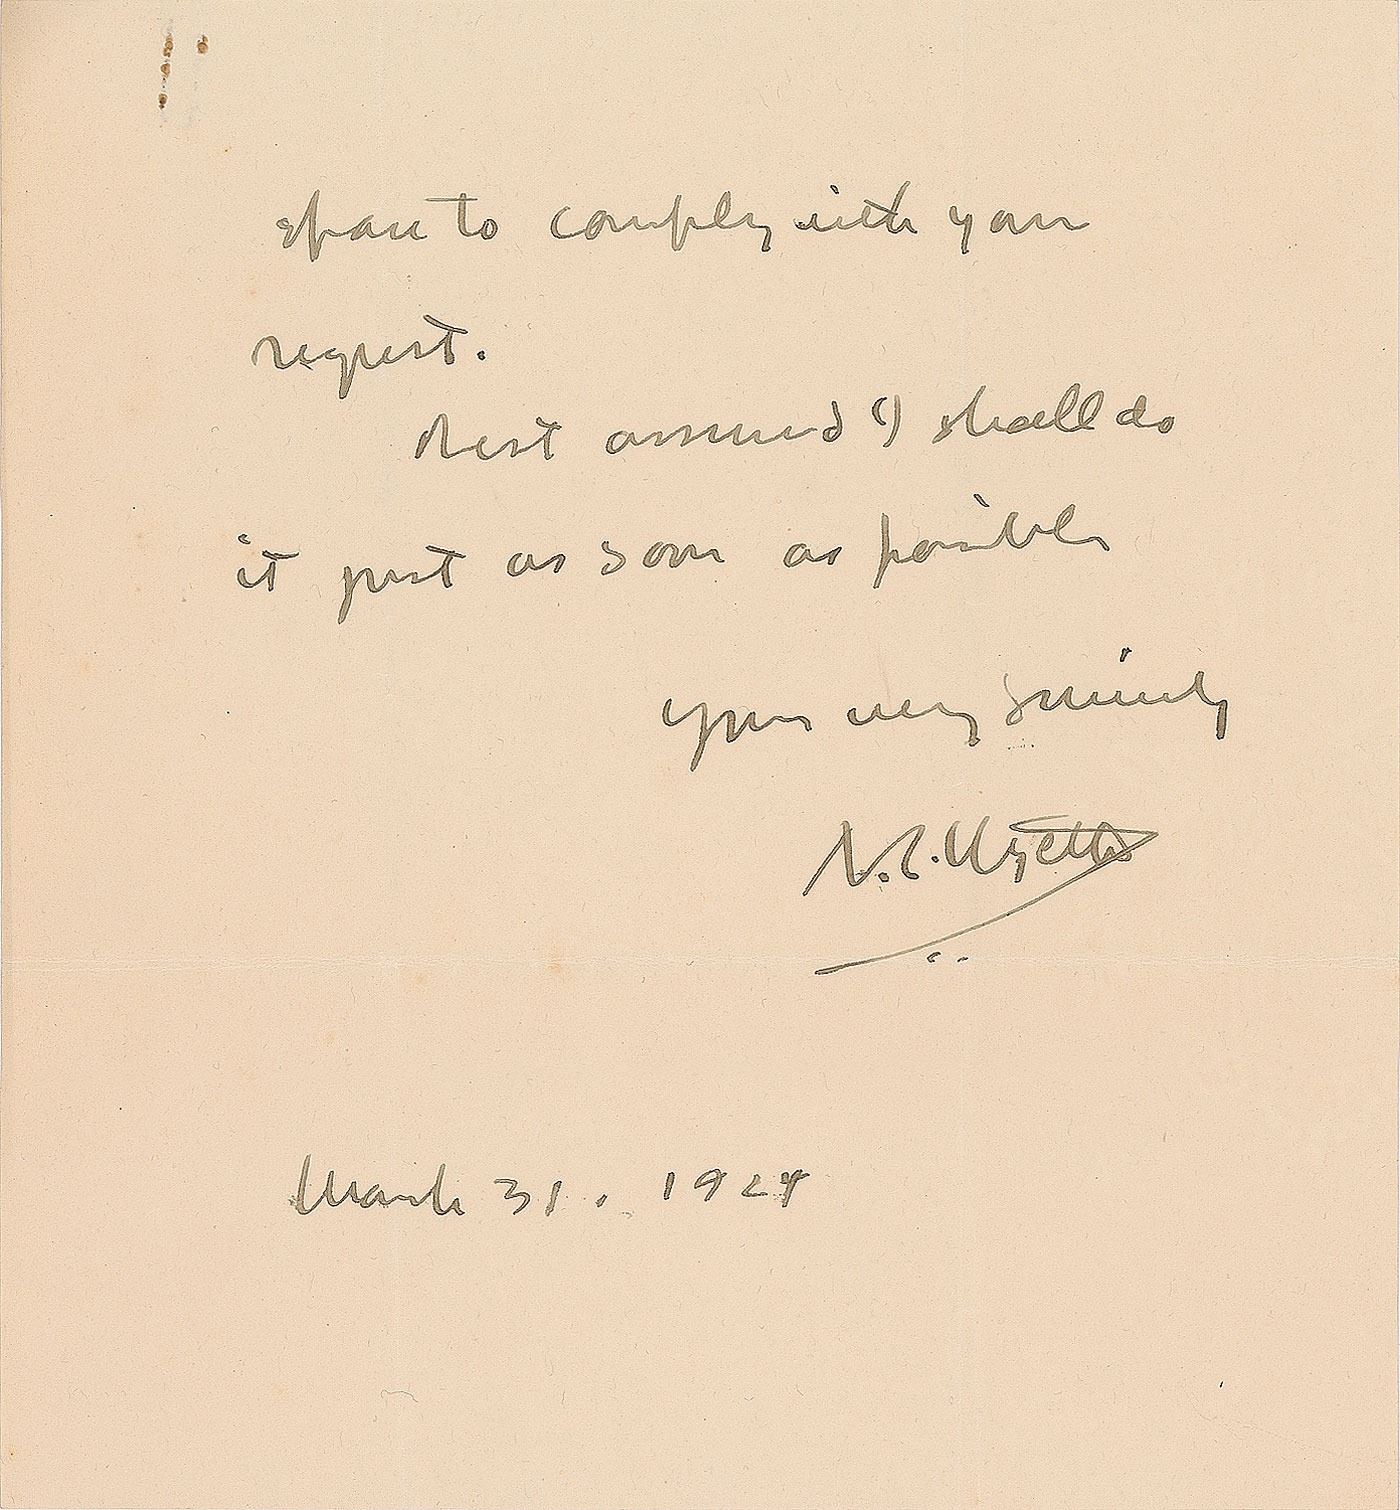 spare to comply with your
request.
Rest assured I shall do
it just as soon as possible
Yours very sincerely
N.C. Wyeth
March 31. 1924